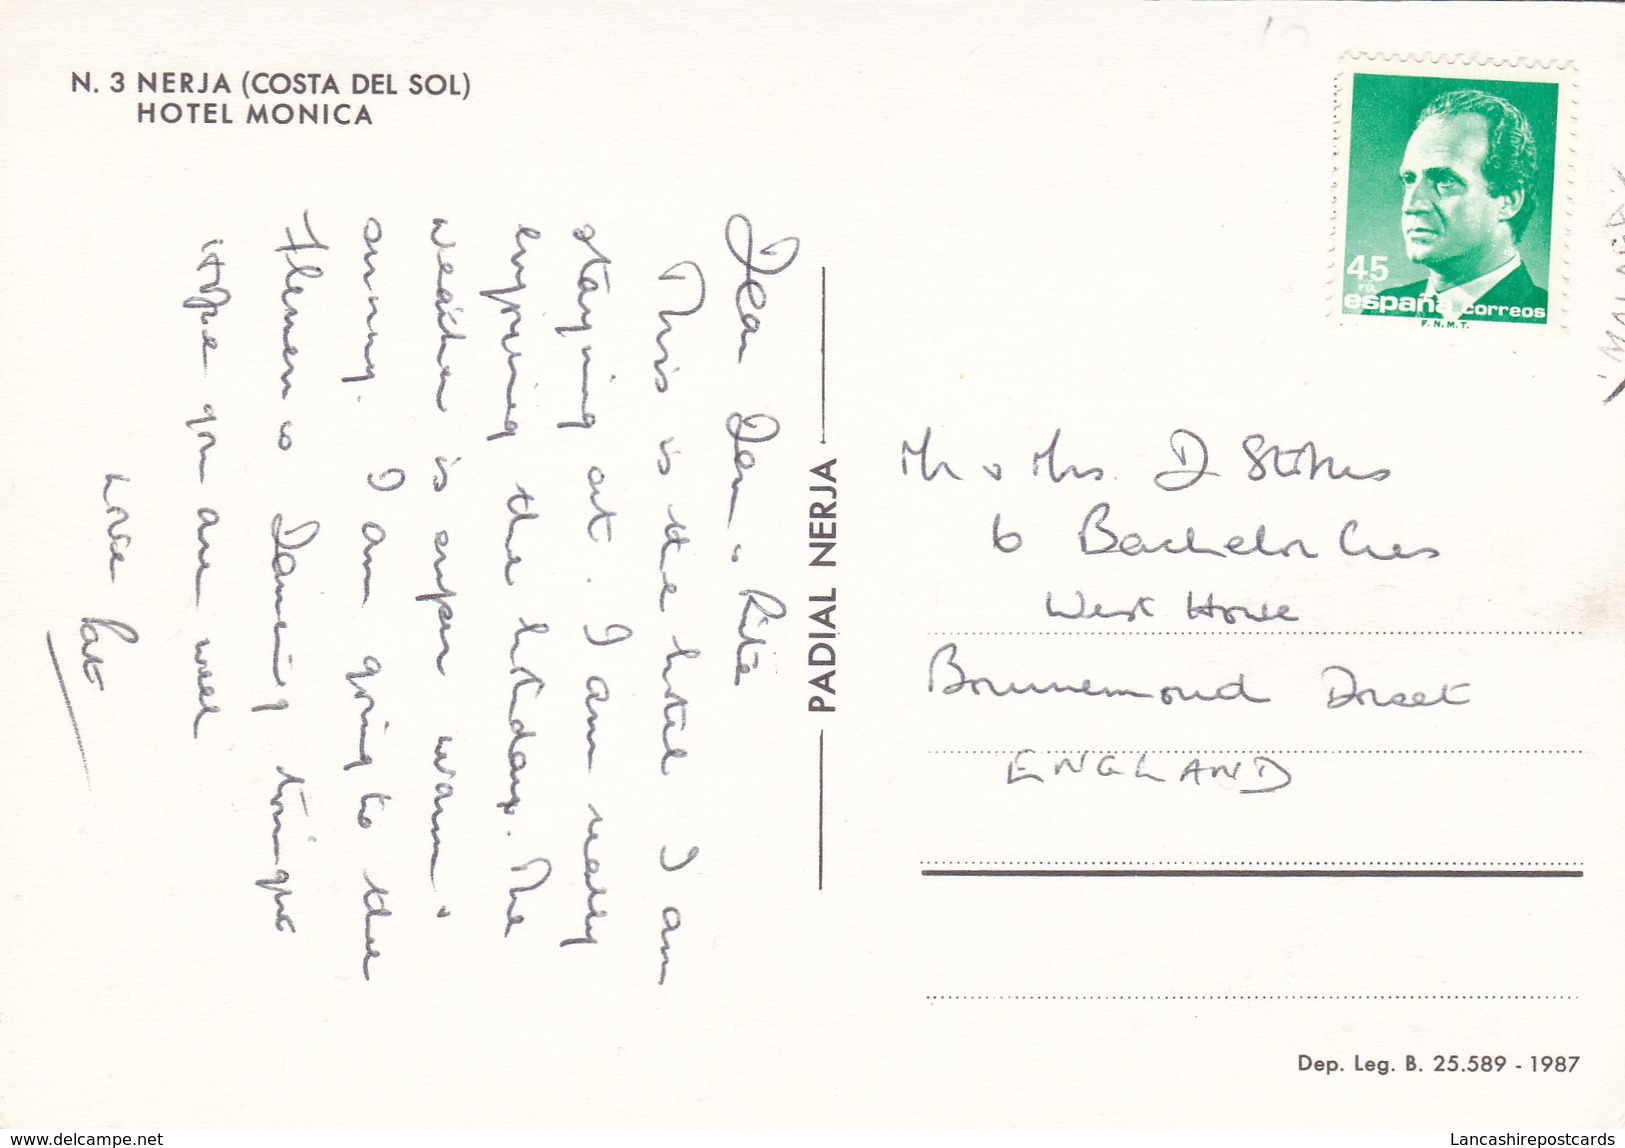 N. 3 NERJA (COSTA DEL SOL)
HOTEL MONICA
Dear Don & Rita
This is the hotel I am
staying at. I am really
enjoying the holiday. The
weather is super warm &
sunny. I am going to the
Flamenco Dancing tonight
Hope you are well
Love Pat
PADIAL NERJA
45
PTA
españa correos
F.N.M.T.
MALAGA
Mr & Mrs. D Stokes
6 Bachelor Cres
West Howe
Bournemouth Dorset
ENGLAND
Dep. Leg. B. 25.589 - 1987
www.delcampe.net
Lancashirepostcards